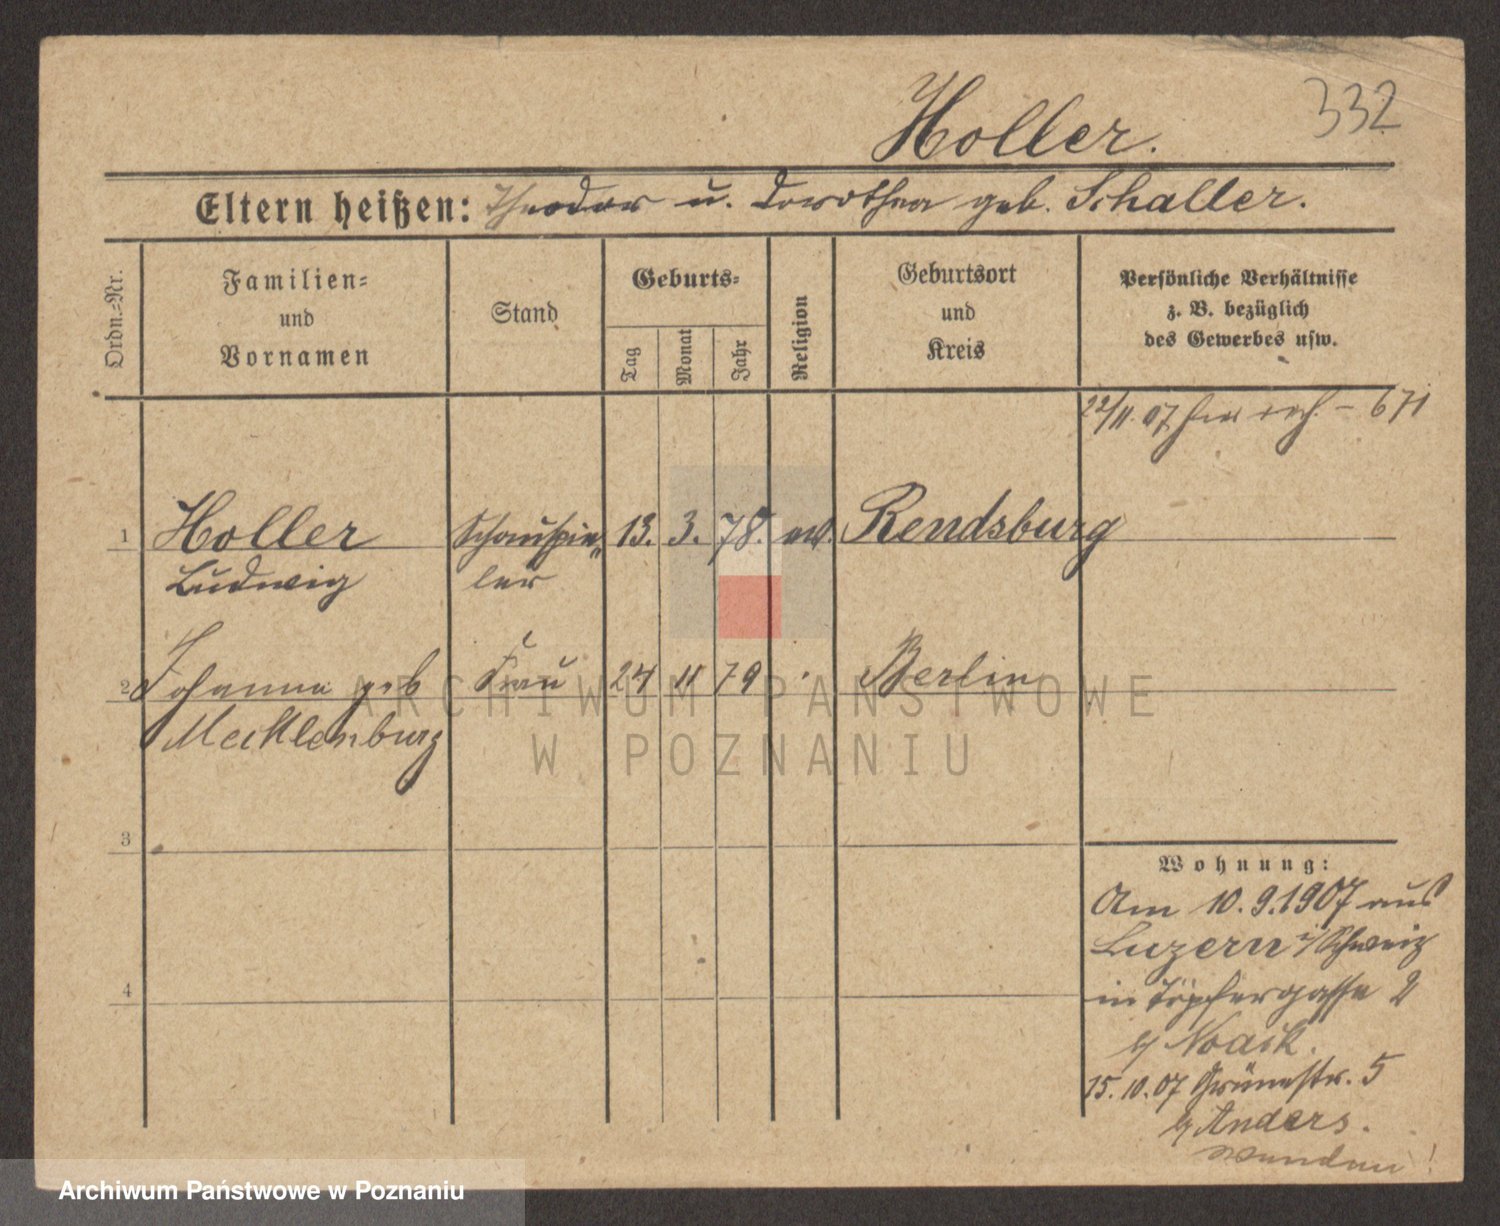 332
Holler.
Eltern heißen: Theodor u. Dorothea geb. Schaller.
Ordn.-Nr.
Familien-
und
Vornamen
Stand
Geburts-
Tag
Monat
Jahr
Religion
Geburtsort
und
Kreis
Persönliche Verhältnisse
z. B. bezüglich
des Gewerbes usw.
22/11. 07 – 671
1 Holler Schauspie„ 13. 3. 78. ev. Rendsburg
Ludwig ler
2 Johanna geb Frau 24 11 79 Berlin
Mecklenburg
3
4
Wohnung:
Am 10.9.1907 aus
Luzern i/Schweiz
in Töpfergasse 2
b/ Noack.
15.10.07 Grünestr. 5
b/ Anders.
wenden!
ARCHIWUM PAŃSTWOWE
W POZNANIU
Archiwum Państwowe w Poznaniu